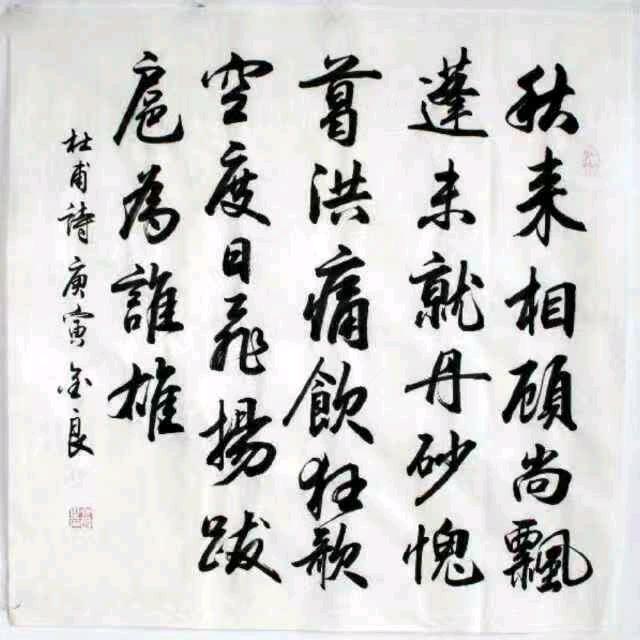 秋来相顾尚飄
蓬未就丹砂愧
葛洪痛飲狂歌
空度日飛揚跋
扈為誰雄
杜甫詩庚寅金良